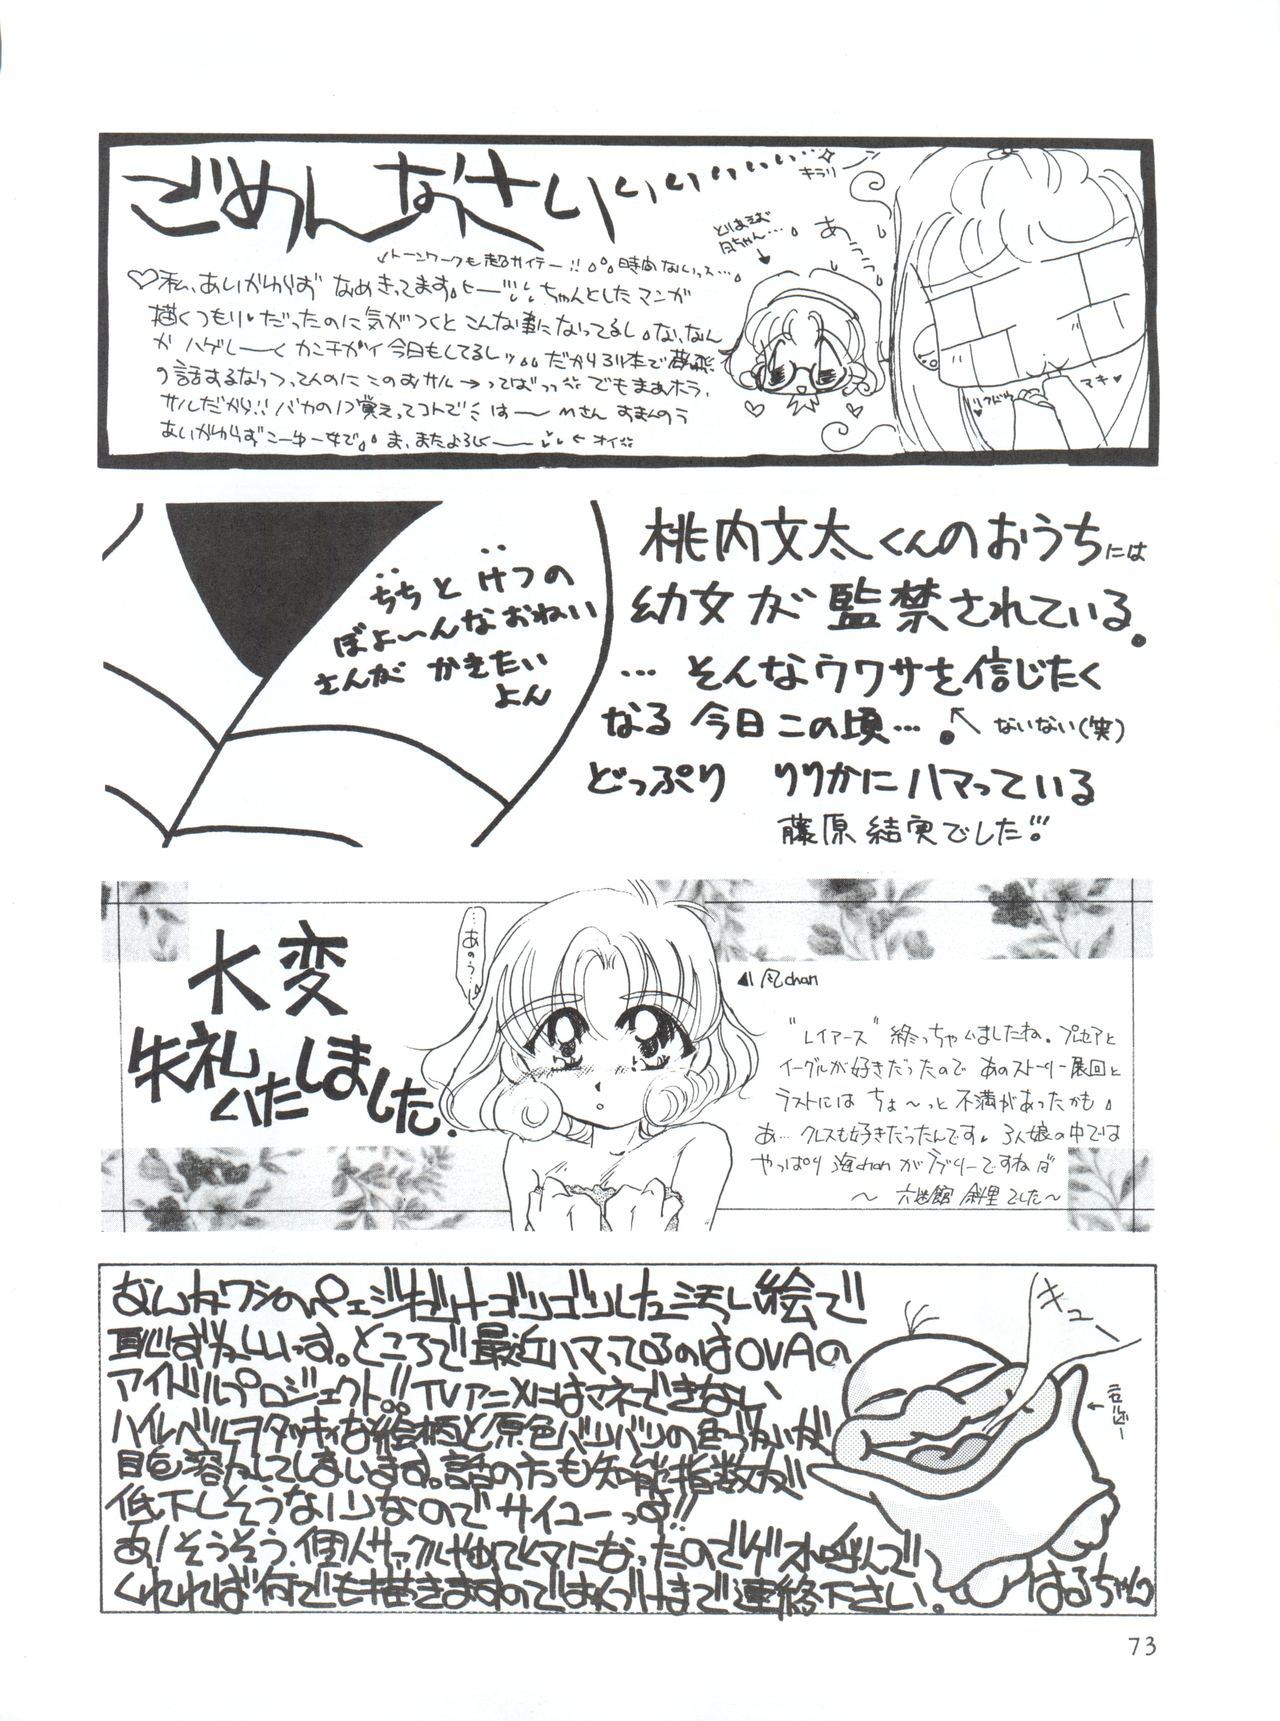 ごめんなさいぃぃぃ
キラリ
あららら
マキ♥
♡私、あいかわらず なめきってます。ちゃんとしたマンガ
描くつもりだったのに気がつくとこんな事になってるし。な、なん
か ハゲしーく カンチガイ今日もしてるしッ
の話するなっつってんのにこのおサル→ってばっっ でもまぁホラ、
サルだから!!バカの1つ覚えってコトで は〜Mさん すまんのう
あいかわらずこーゆー女で。ま、またよろしくー ←オイ
ちちと けつの
ぼよ〜んなおねい
さんが かきたい
よん
桃内文太くんのおうちには
幼女が監禁されている。
…そんなウワサを信じたく
なる今日この頃…。
ないない(笑)
どっぷり りりかにハマっている
藤原結実でした!!
大変
失礼
いたしました.
…あのう
◀風chan
"レイアース"終っちゃいましたね。プレセアと
イーグルが好きだったので あのストーリー展回と
ラストには ちょ〜っと 不満があったかも。
あ… クレスも好きだったんです。3人娘の中では
やっぱり 海chanがラブリーですねば
〜 館 斜里でした〜
なんかワシのページだけゴリゴリした汚い絵で
恥ずかしいっす。ところで最近ハマってるのはOVAの
アイドルプロジェクト!!TVアニメにはマネできない
ハイレベルヲタッキィな絵柄と原色バリバリの色づかいが
目を溶かしてしまいます。話の方も知能指数が
低下しそうなノリなのでサイコーっす!!
あ!そうそう、個人サークルやめてヒマになったのでゲスト呼んで
くれれば何でも描きますのではるづけまで連絡下さい。
キュー
はるちゃん
73